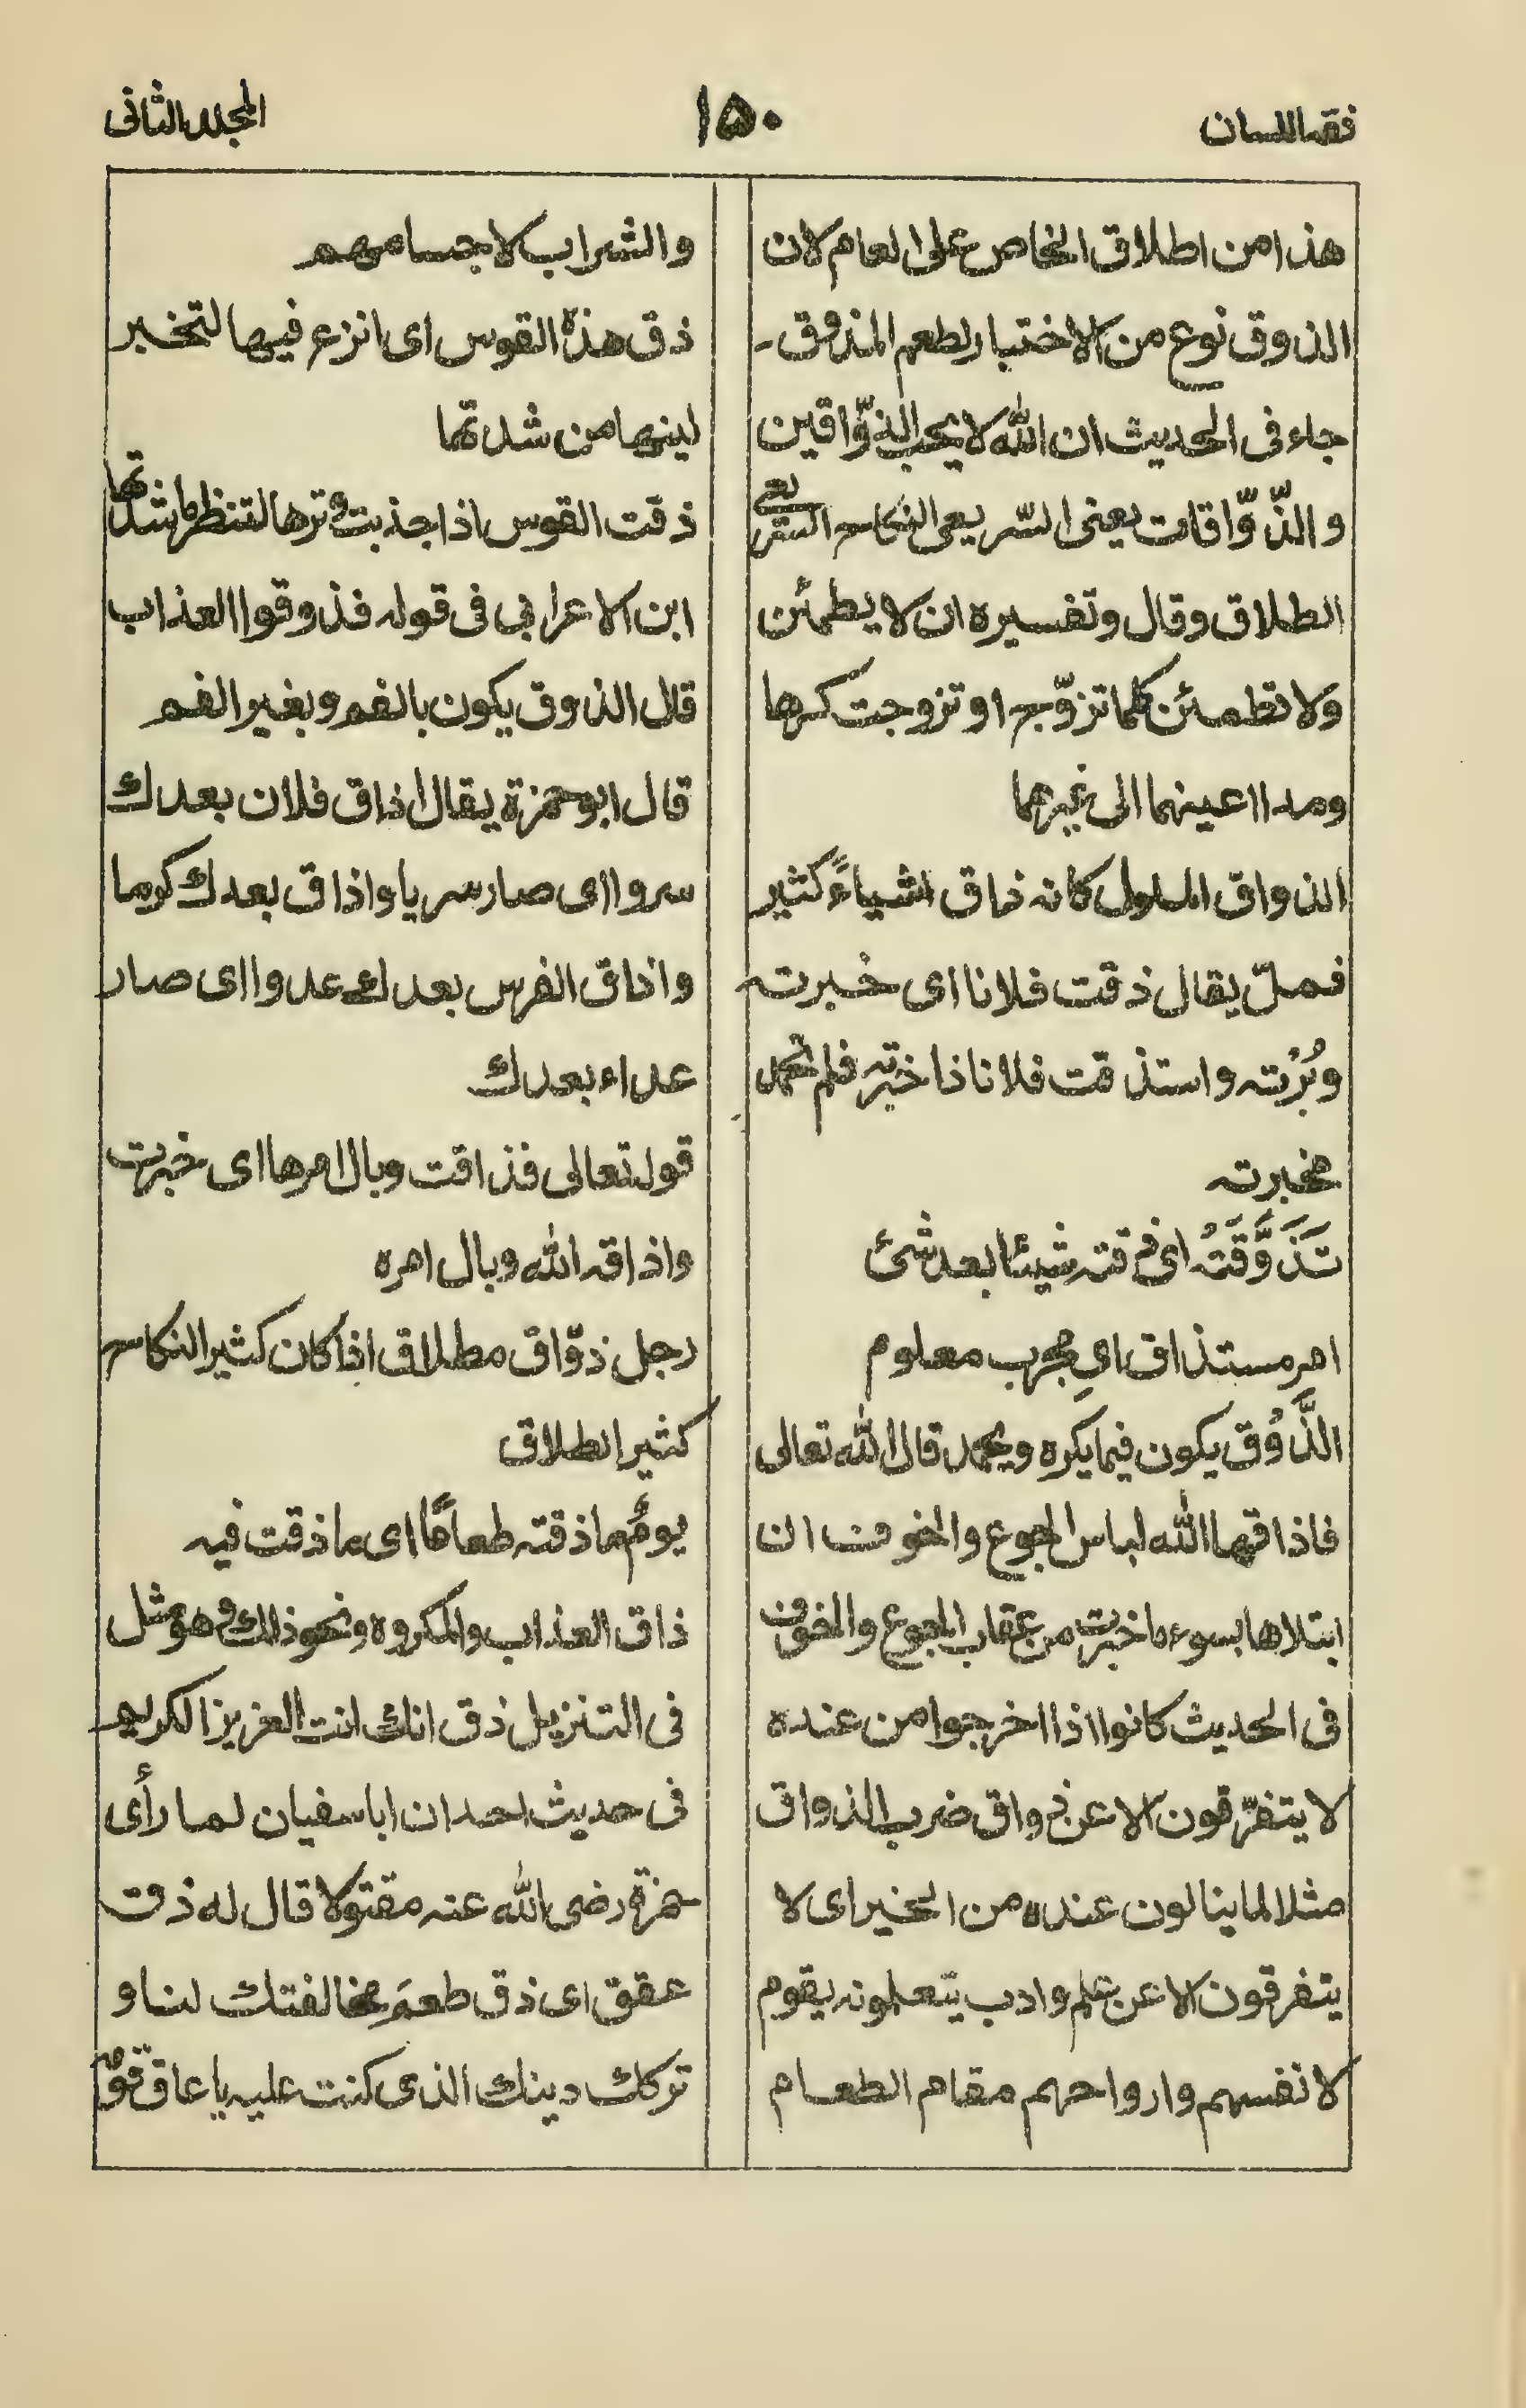 فقہ اللسان
۱۵۰
المجلد الثانی
هذا من اطلاق الخاص على العام لان
الذوق نوع من الاختبار لطعم المذوق۔
جاء فى الحديث ان الله لا يحب الذوّاقين
والذّوّاقات يعنى السّريعى النكاح السّريعى
الطلاق وقال وتفسيره ان لا يطمئن
ولا تطمئن كلما تزوّج او تزوجت كرها
ومدا اعينهما الى غيرهما
الذواق الملول كانه ذاق اشياءً كثير
فملّ يقال ذقت فلانا اى خبرته
وبُرْته واستذقت فلانا اذا خبرته فلم تحمد
مخبرته
تَذَوَّقَتُه اى ذقته شيئا بعد شئ
امر مستذاق اى مجرب معلوم
الذَّوْق يكون فيما يكره ويحمد قال الله تعالى
فاذاقها الله لباس الجوع والخوف ان
ابتلاها بسوء ما خبرت من عقاب الجوع والخوف
فى الحديث كانوا اذا اخرجوا من عنده
لا يتفرّقون الا عن ذواق ضرب الذواق
مثلا لما ينالون عنده من الخير اى لا
يتفرقون الا عن علم وادب يتعلمونه يقوم
لانفسهم وارواحهم مقام الطعام
والشراب لاجسامهم
ذق هذه القوس اى انزع فيها لتخبر
لينها من شدتها
ذقت القوس اذا جذبت وترها لتنظر ما شدتها
ابن الاعرابى فى قوله فذوقوا العذاب
قال الذوق يكون بالفم وبغير الفم
قال ابو حمزة يقال اذاق فلان بعدك
سروا اى صار سريا واذاق بعدك كرما
واذاق الفرس بعدك عدوا اى صار
عداء بعدك
قوله تعالى فذاقت وبال امرها اى خبرت
واذاقه الله وبال امره
رجل ذوّاق مطلاق اذا كان كثير النكاح
كثير الطلاق
يومٌ ما ذقته طعامًا اى ما ذقت فيه
ذاق العذاب والمكروه ونحو ذلك وهو مثل
فى التنزيل ذق انك انت العزيز الكريم
فى حديث احد ان ابا سفيان لما رأى
حمزة رضى الله عنه مقتولا قال له ذق
عقق اى ذق طعمَ مخالفتك لنا و
تركك دينك الذى كنت عليه يا عاق